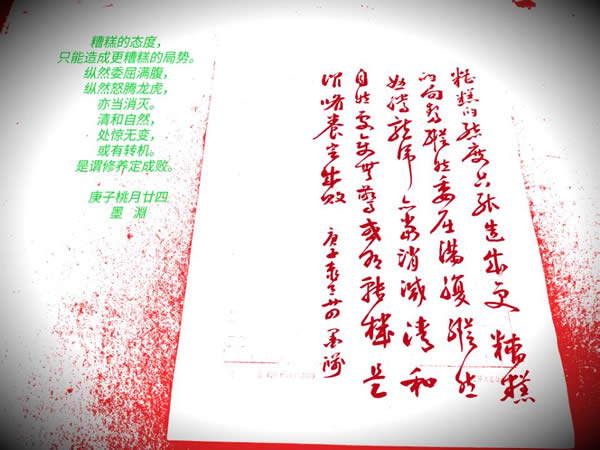 糟糕的态度，
只能造成更糟糕的局势。
纵然委屈满腹，
纵然怒腾龙虎，
亦当消灭。
清和自然，
处惊无变，
或有转机。
是谓修养定成败。
庚子桃月廿四
墨 淵
糟糕的态度只能造成更糟糕
的局势縱然委屈满腹縱然
怒腾龙虎亦當消滅清和
自然處变無驚或有转機是
谓修養定成败 庚子 廿四